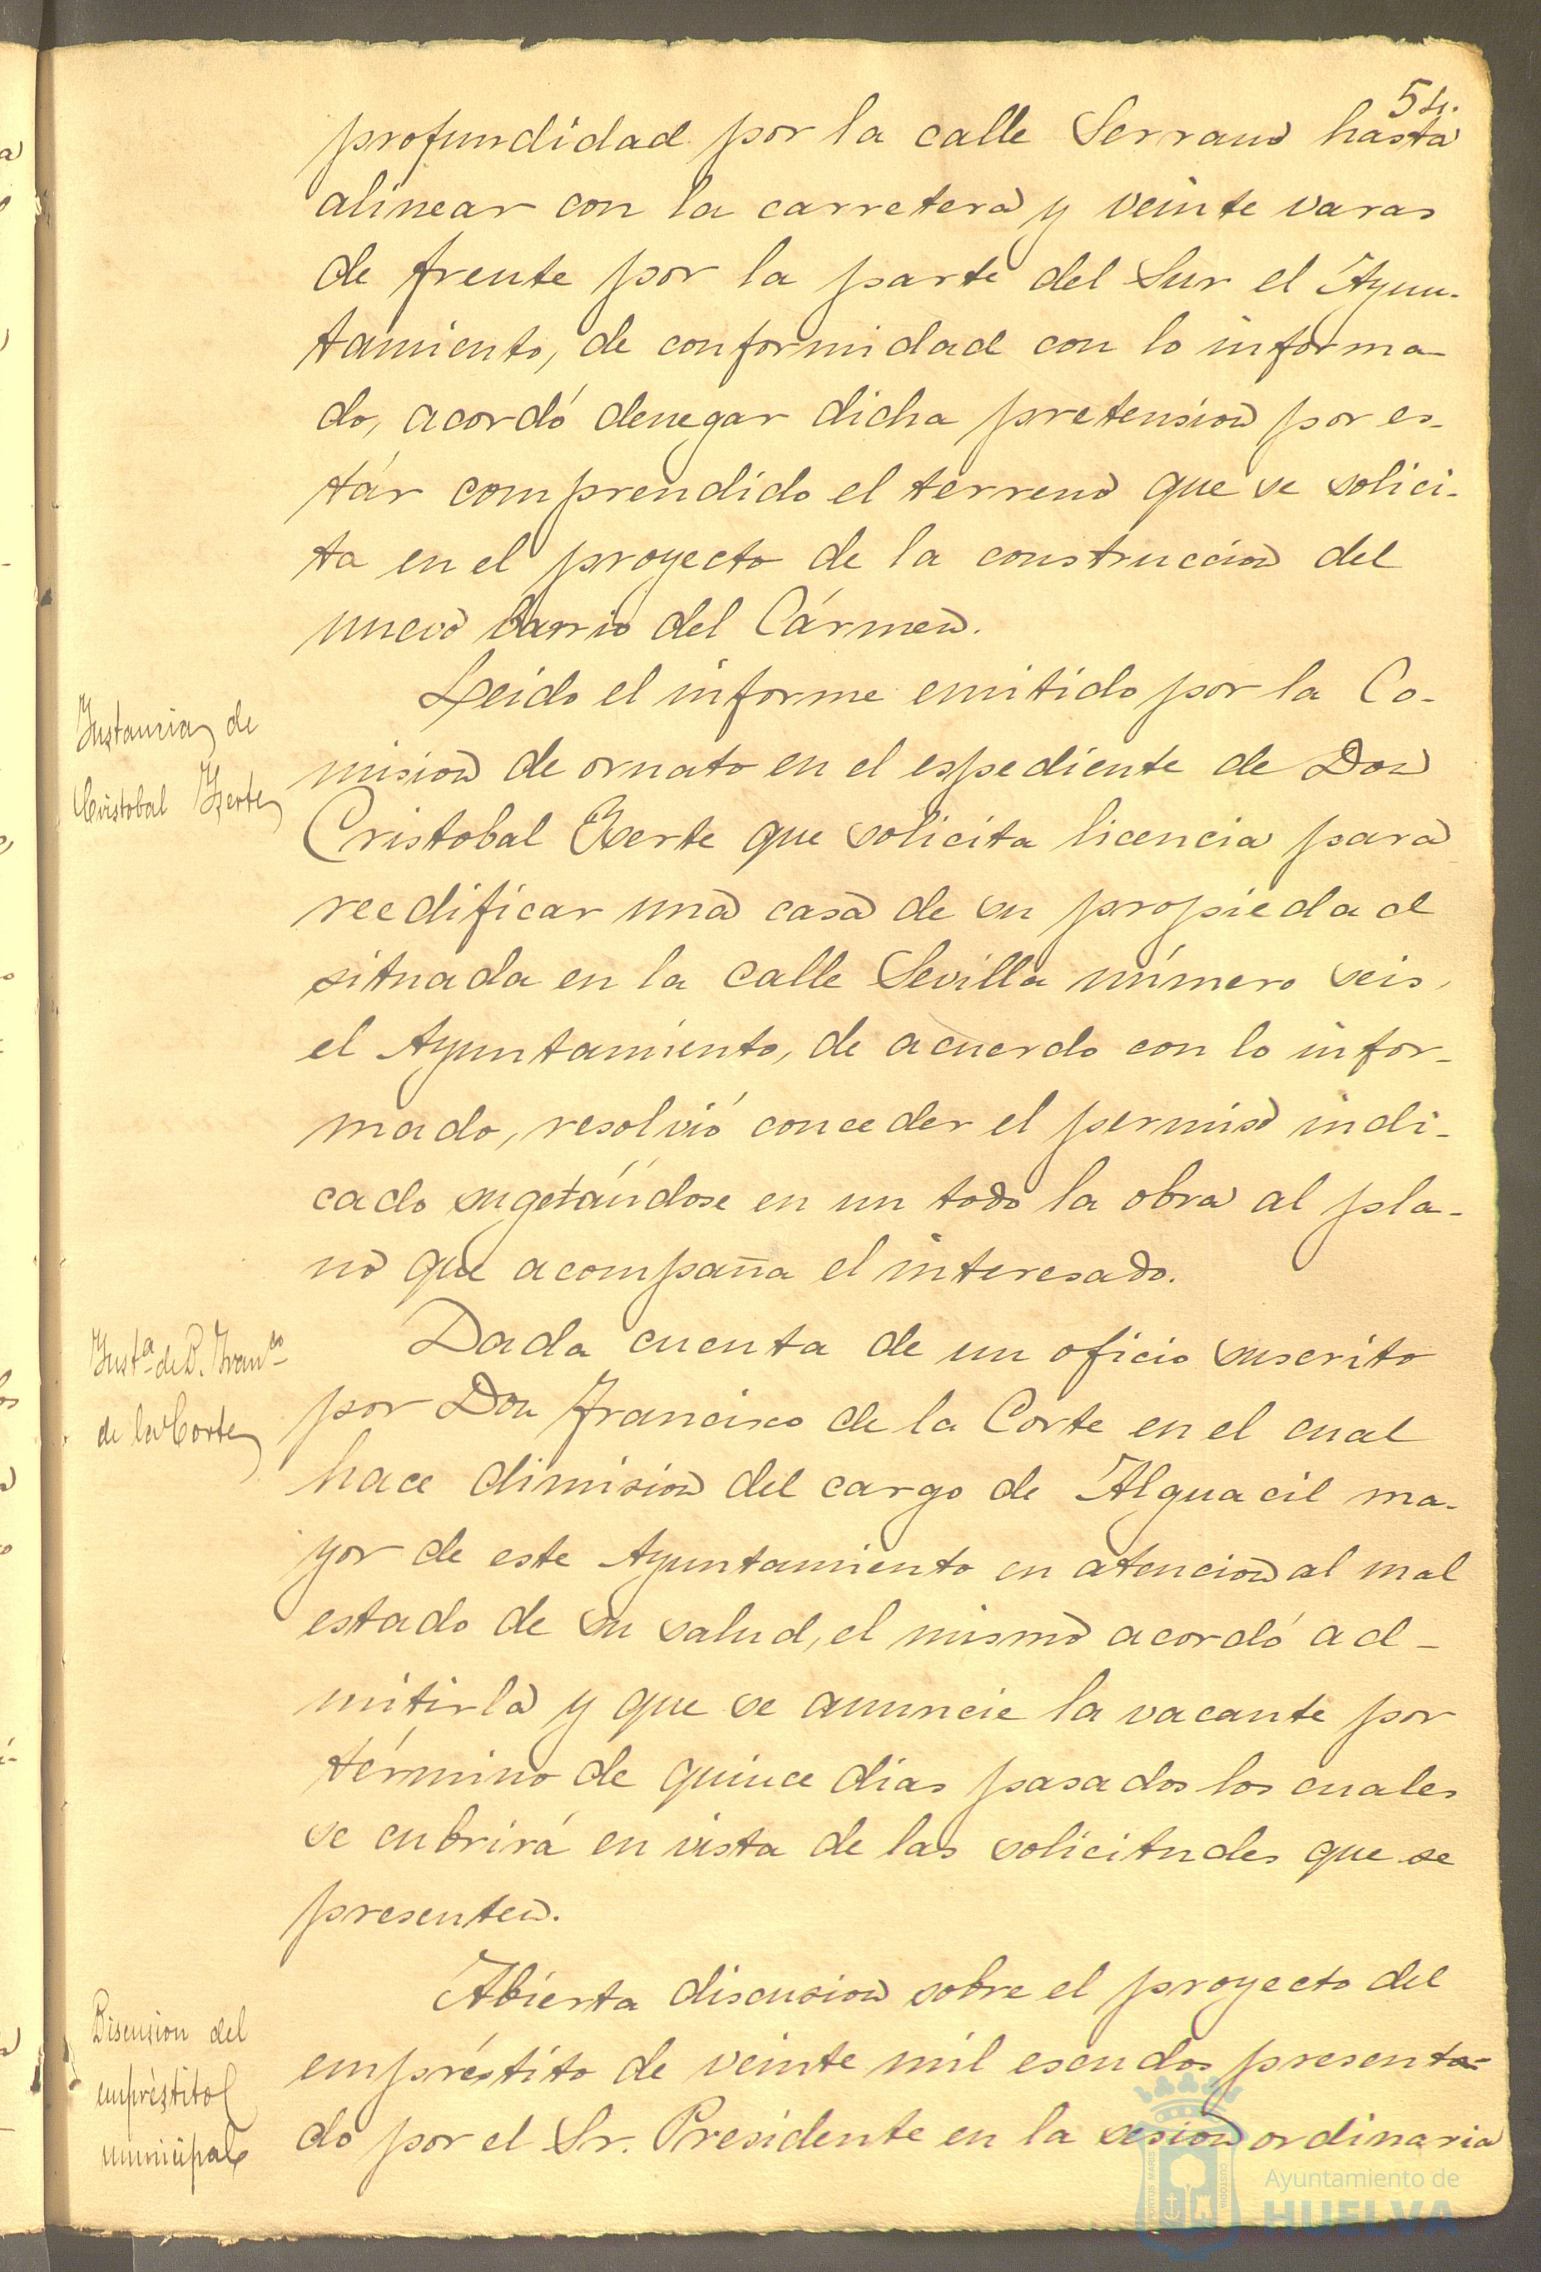 54.
profundidad por la calle Serrano hasta
alinear con la carretera y veinte varas
de frente por la parte del Sur el Ayun-
tamiento, de conformidad con lo informa-
do, acordó denegar dicha pretension por es-
tár comprendido el terreno que se solici-
ta en el proyecto de la construccion del
nuevo barrio del Cármen.
Instancia de
Cristobal
Leido el informe emitido por la Co-
mision de ornato en el espediente de Don
Cristobal que solicita licencia para
reedificar una casa de su propiedad
situada en la calle Sevilla número seis,
el Ayuntamiento, de acuerdo con lo infor-
mado, resolvió conceder el permiso indi-
cado sugetándose en un todo la obra al pla-
no que acompaña el interesado.
Instª de D. Francº
de la Corte
Dada cuenta de un oficio suscrito
por Don Francisco de la Corte en el cual
hace dimision del cargo de Alguacil ma-
yor de este Ayuntamiento en atencion al mal
estado de su salud, el mismo acordó ad-
mitirla y que se anuncie la vacante por
término de quince dias pasados los cuales
se cubrirá en vista de las solicitudes que se
presenten.
Discusion del
empréstito
municipal
Abierta discusion sobre el proyecto del
empréstito de veinte mil escudos presenta-
do por el Sr. Presidente en la sesion ordinaria
Ayuntamiento de
HUELVA